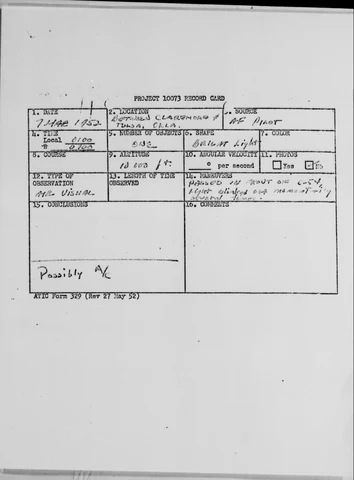 PROJECT 10073 RECORD CARD
1. DATE
7 MAR 1952
2. LOCATION
BETWEEN CLAREMORE &
TULSA, OKLA.
3. SOURCE
AF PILOT
4. TIME
Local 0100
0700
5. NUMBER OF OBJECTS
ONE
6. SHAPE
BRIGHT Light
7. COLOR
8. COURSE
9. ALTITUDE
10 000 ft.
10. ANGULAR VELOCITY
o per second
11. PHOTOS
Yes No
12. TYPE OF
OBSERVATION
AIR VISUAL
13. LENGTH OF TIME
OBSERVED
14. MANEUVERS
PASSED IN FRONT OF C-54,
Light blinked out momentarily
several times.
15. CONCLUSIONS
Possibly A/C
16. COMMENTS
ATIC Form 329 (Rev 27 May 52)